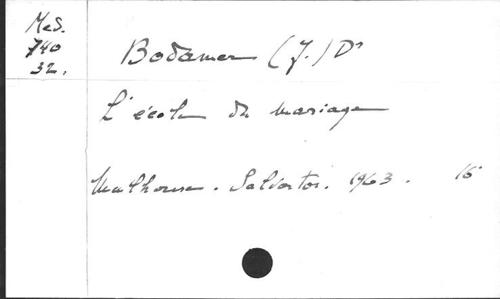 Med.
740
32.
Bodamer (J.) Dr
L'école du mariage
Mulhouse. Salvator. 1963. 16